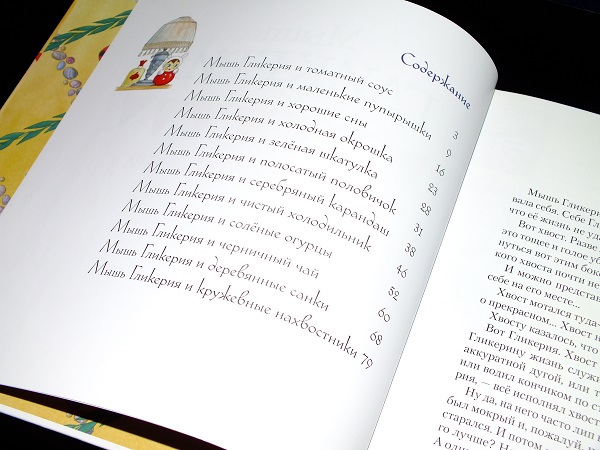 Содержание
Мышь Гликерия и томатный соус 3
Мышь Гликерия и маленькие пупырышки 9
Мышь Гликерия и хорошие сны 16
Мышь Гликерия и холодная окрошка 23
Мышь Гликерия и зелёная шкатулка 28
Мышь Гликерия и полосатый половичок 31
Мышь Гликерия и серебряный карандаш 38
Мышь Гликерия и чистый холодильник 46
Мышь Гликерия и солёные огурцы 52
Мышь Гликерия и черничный чай 60
Мышь Гликерия и деревянные санки 68
Мышь Гликерия и кружевные нахвостники 79
Мышь Гликери
вала себя. Себе Гл
что её жизнь не уд
Вот хвост. Разве
это тощее и голое уб
нуться вот этим бок
кого хвоста почти не
И можно представ
себе на его месте...
Хвост мотался туда-
о прекрасном... Хвост н
Хвосту казалось, что
Вот Гликерия. Хвост
Гликерину жизнь служи
аккуратной дугой, или т
или водил кончиком по ст
рия, – всё исполнял хвост
Ну да, на него часто лип
был мокрый и, пожалуй, н
старался. И потом
го лучше? Н
А одн